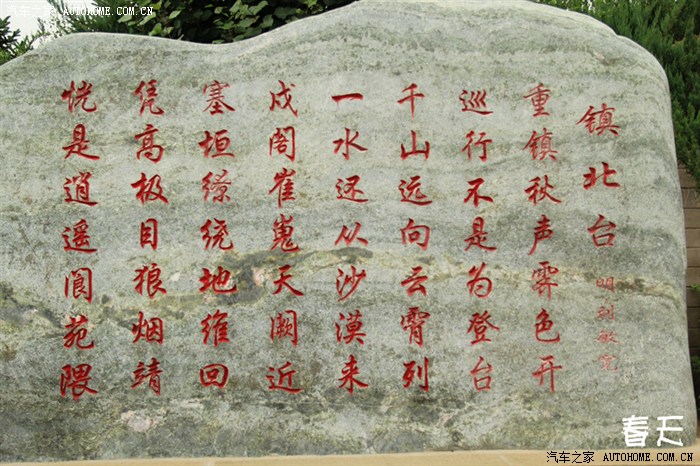 汽车之家 AUTOHOME.COM.CN
镇北台 明刘敏宽
重镇秋声霁色开
巡行不是为登台
千山远向云霄列
一水还从沙漠来
戍阁崔嵬天阙近
塞垣缭绕地维回
凭高极目狼烟靖
恍是逍遥阆苑隈
春天
汽车之家 AUTOHOME.COM.CN
汽车之家 AUTOHOME.COM.CN